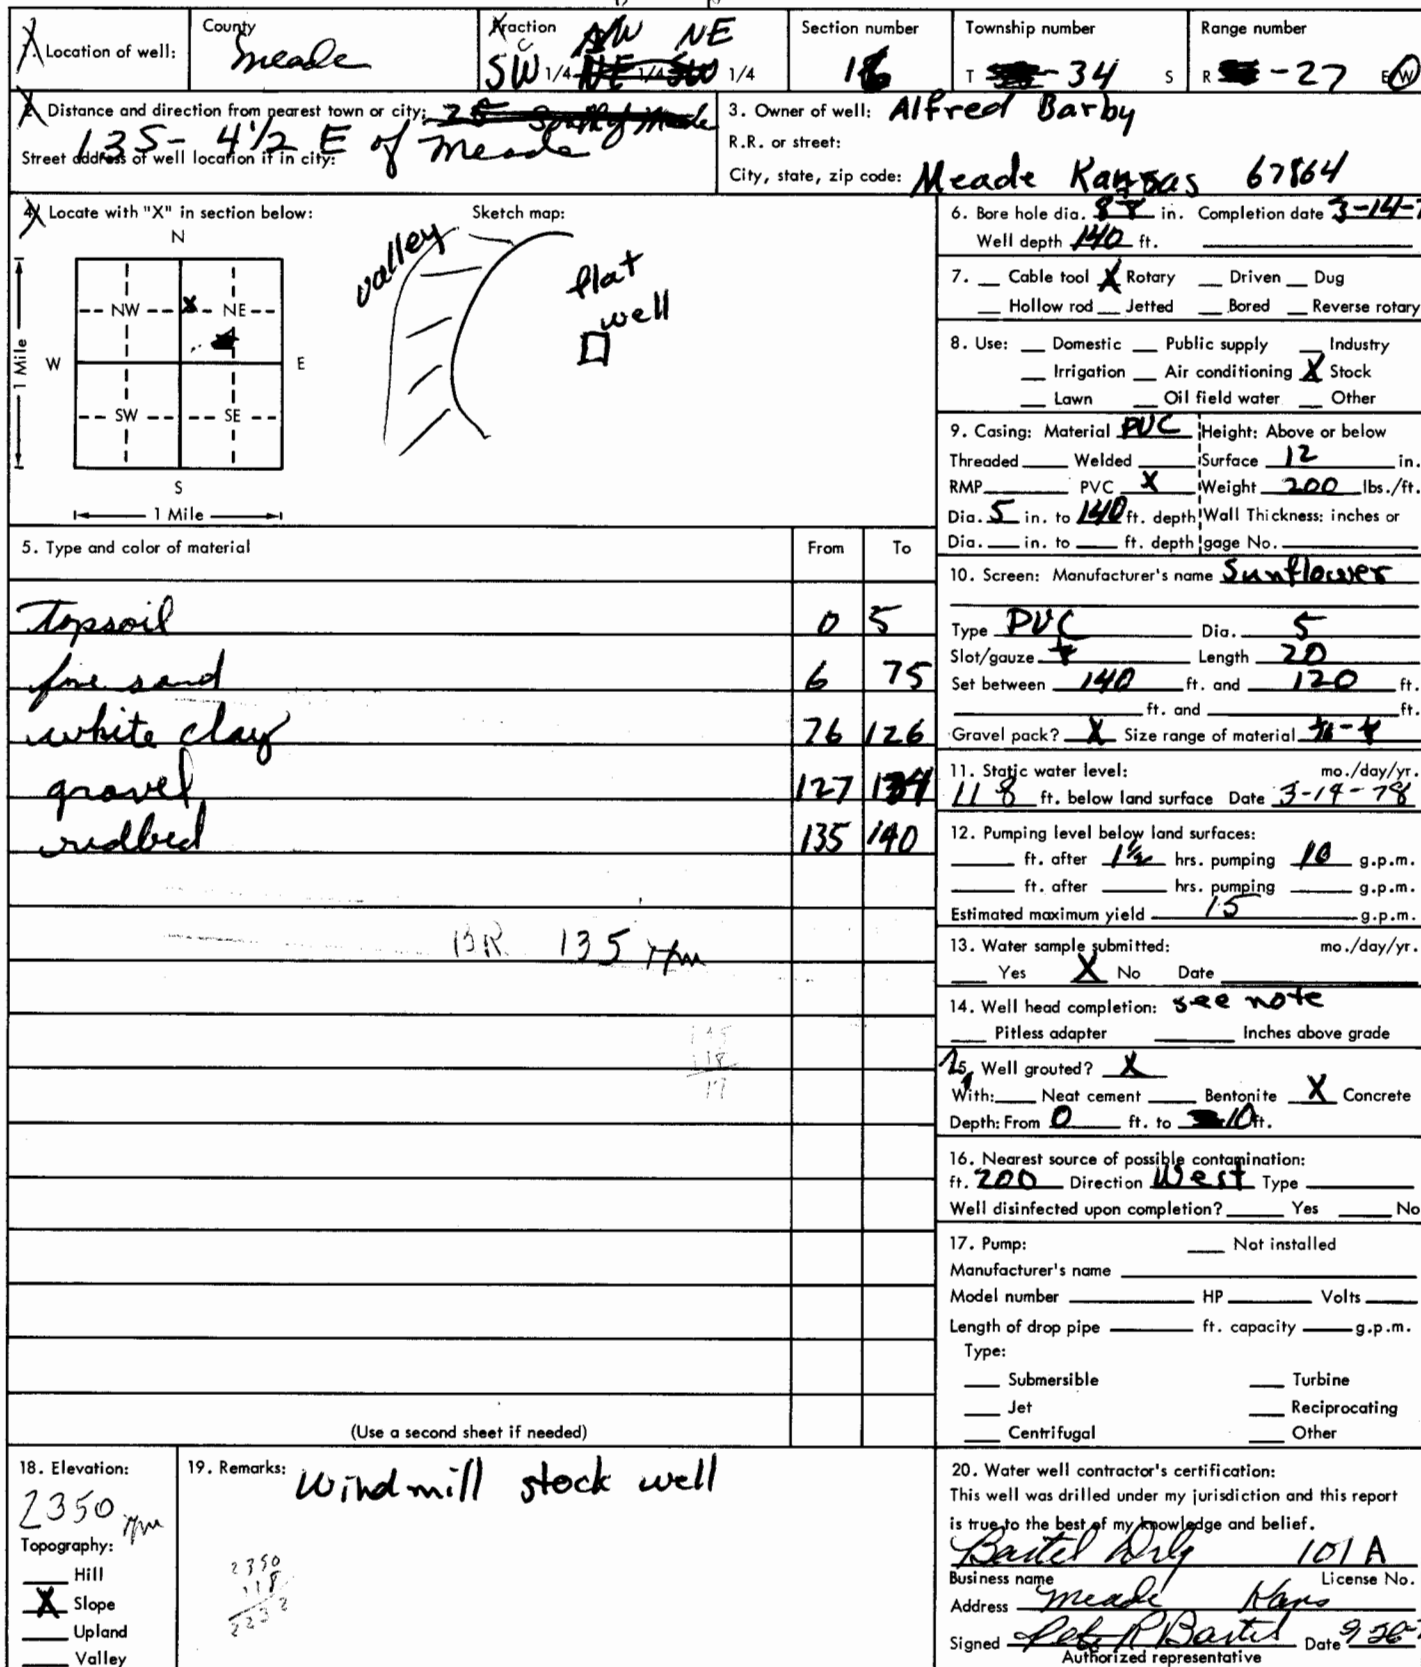 1. Location of well: County Meade Fraction C SW 1/4 NW 1/4 NE 1/4 Section number 16 Township number T 34 S Range number R 27 E W
2. Distance and direction from nearest town or city: 13S - 4 1/2 E of Meade
Street address of well location if in city:
3. Owner of well: Alfred Barby
R.R. or street:
City, state, zip code: Meade Kansas 67864
4. Locate with "X" in section below:
N
NW X NE
W E
SW SE
S
1 Mile
1 Mile
Sketch map:
valley
flat
well
5. Type and color of material From To
Topsoil 0 5
fine sand 6 75
white clay 76 126
gravel 127 134
redbed 135 140
BR 135
135
118
17
(Use a second sheet if needed)
6. Bore hole dia. in. Completion date 3-14-
Well depth 140 ft.
7. Cable tool X Rotary Driven Dug
Hollow rod Jetted Bored Reverse rotary
8. Use: Domestic Public supply Industry
Irrigation Air conditioning X Stock
Lawn Oil field water Other
9. Casing: Material PVC Height: Above or below
Threaded Welded Surface 12 in.
RMP PVC X Weight 200 lbs./ft.
Dia. 5 in. to 140 ft. depth Wall Thickness: inches or
Dia. in. to ft. depth gage No.
10. Screen: Manufacturer's name Sunflower
Type PVC Dia. 5
Slot/gauze Length 20
Set between 140 ft. and 120 ft.
ft. and ft.
Gravel pack? X Size range of material
11. Static water level: mo./day/yr.
118 ft. below land surface Date 3-14-78
12. Pumping level below land surfaces:
ft. after 1 1/2 hrs. pumping 10 g.p.m.
ft. after hrs. pumping g.p.m.
Estimated maximum yield 15 g.p.m.
13. Water sample submitted: mo./day/yr.
Yes X No Date
14. Well head completion: see note
Pitless adapter Inches above grade
15. Well grouted? X
With: Neat cement Bentonite X Concrete
Depth: From 0 ft. to 10 ft.
16. Nearest source of possible contamination:
ft. 200 Direction West Type
Well disinfected upon completion? Yes No
17. Pump: Not installed
Manufacturer's name
Model number HP Volts
Length of drop pipe ft. capacity g.p.m.
Type:
Submersible Turbine
Jet Reciprocating
Centrifugal Other
18. Elevation:
2350
Topography:
Hill
X Slope
Upland
Valley
19. Remarks: Windmill stock well
2350
118
2232
20. Water well contractor's certification:
This well was drilled under my jurisdiction and this report
is true to the best of my knowledge and belief.
Bartel Drlg 101 A
Business name License No.
Address Meade Kans
Signed Pete R Bartel Date
Authorized representative